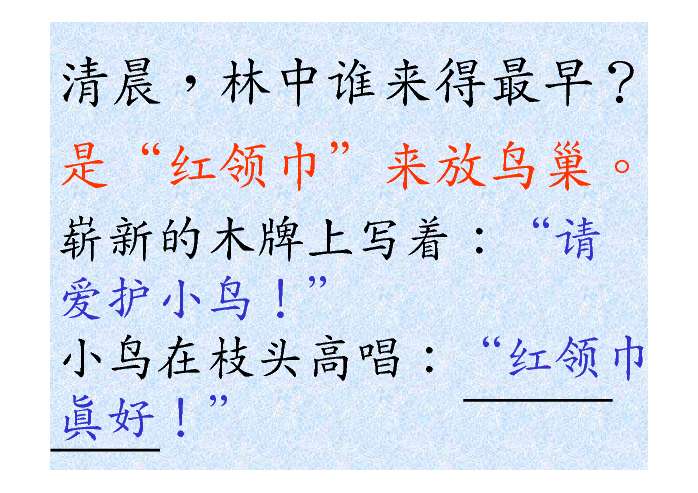 清晨，林中谁来得最早？
是“红领巾”来放鸟巢。
崭新的木牌上写着：“请
爱护小鸟！”
小鸟在枝头高唱：“红领巾
真好！”